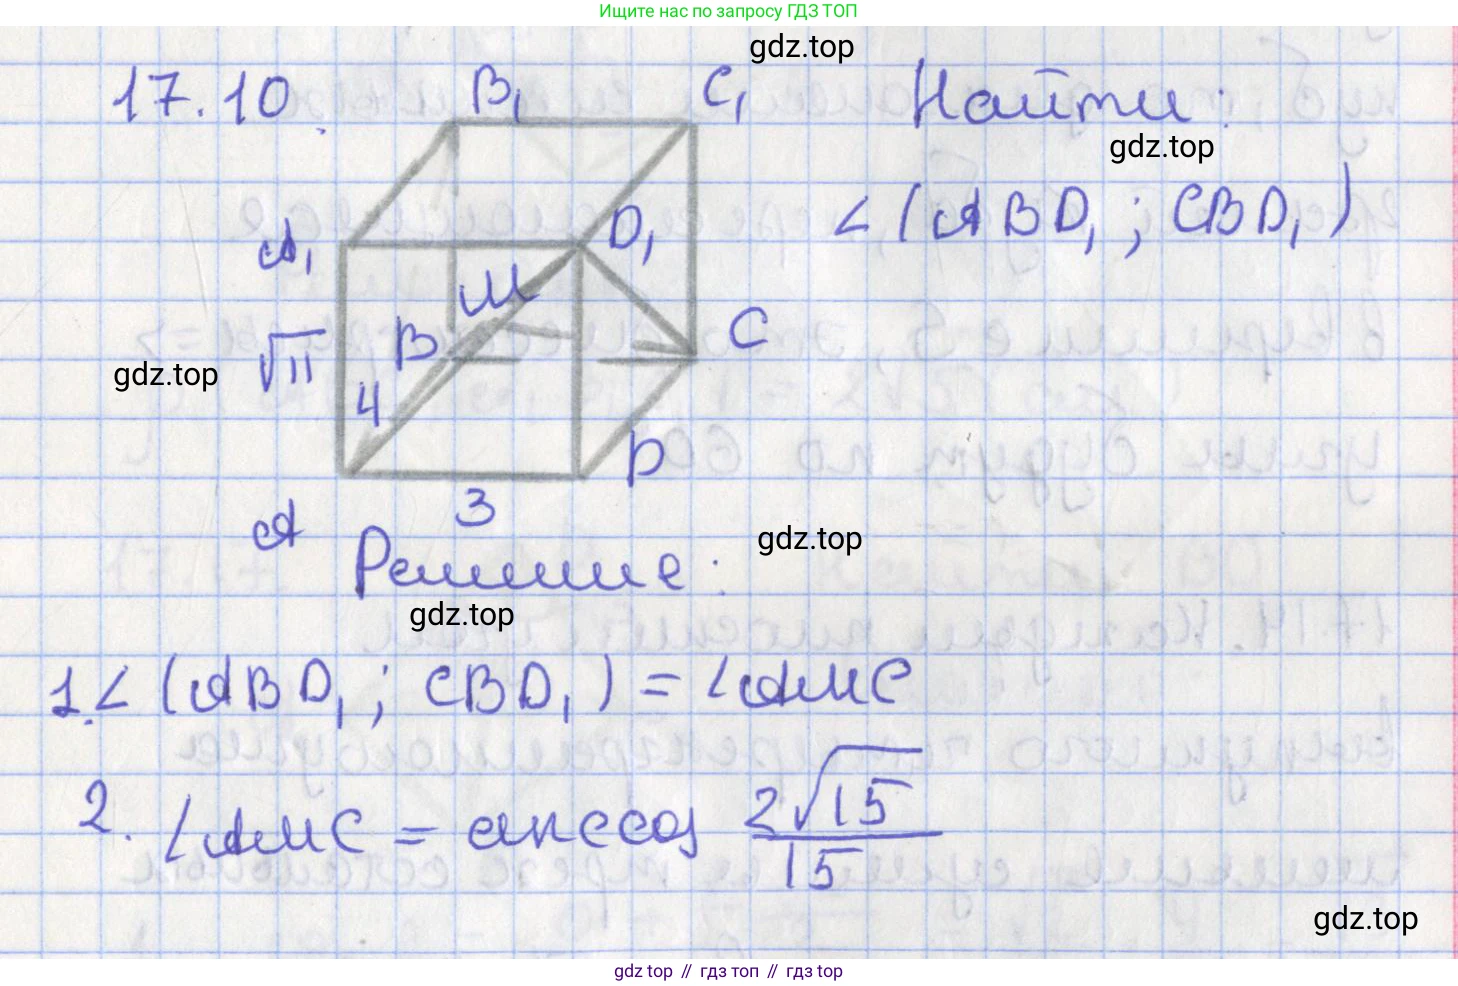 Ищите нас по запросу ГДЗ ТОП
gdz.top
17.10.
B₁
C₁
Найти:
gdz.top
A₁
D₁
∠(ABD₁; CBD₁)
M
√11
B
C
gdz.top
4
D
3
A
gdz.top
Решение:
gdz.top
1.∠(ABD₁; CBD₁) = ∠AMC
2. ∠AMC = arccos 2√15/15
gdz.top
gdz top // гдз топ // гдз top